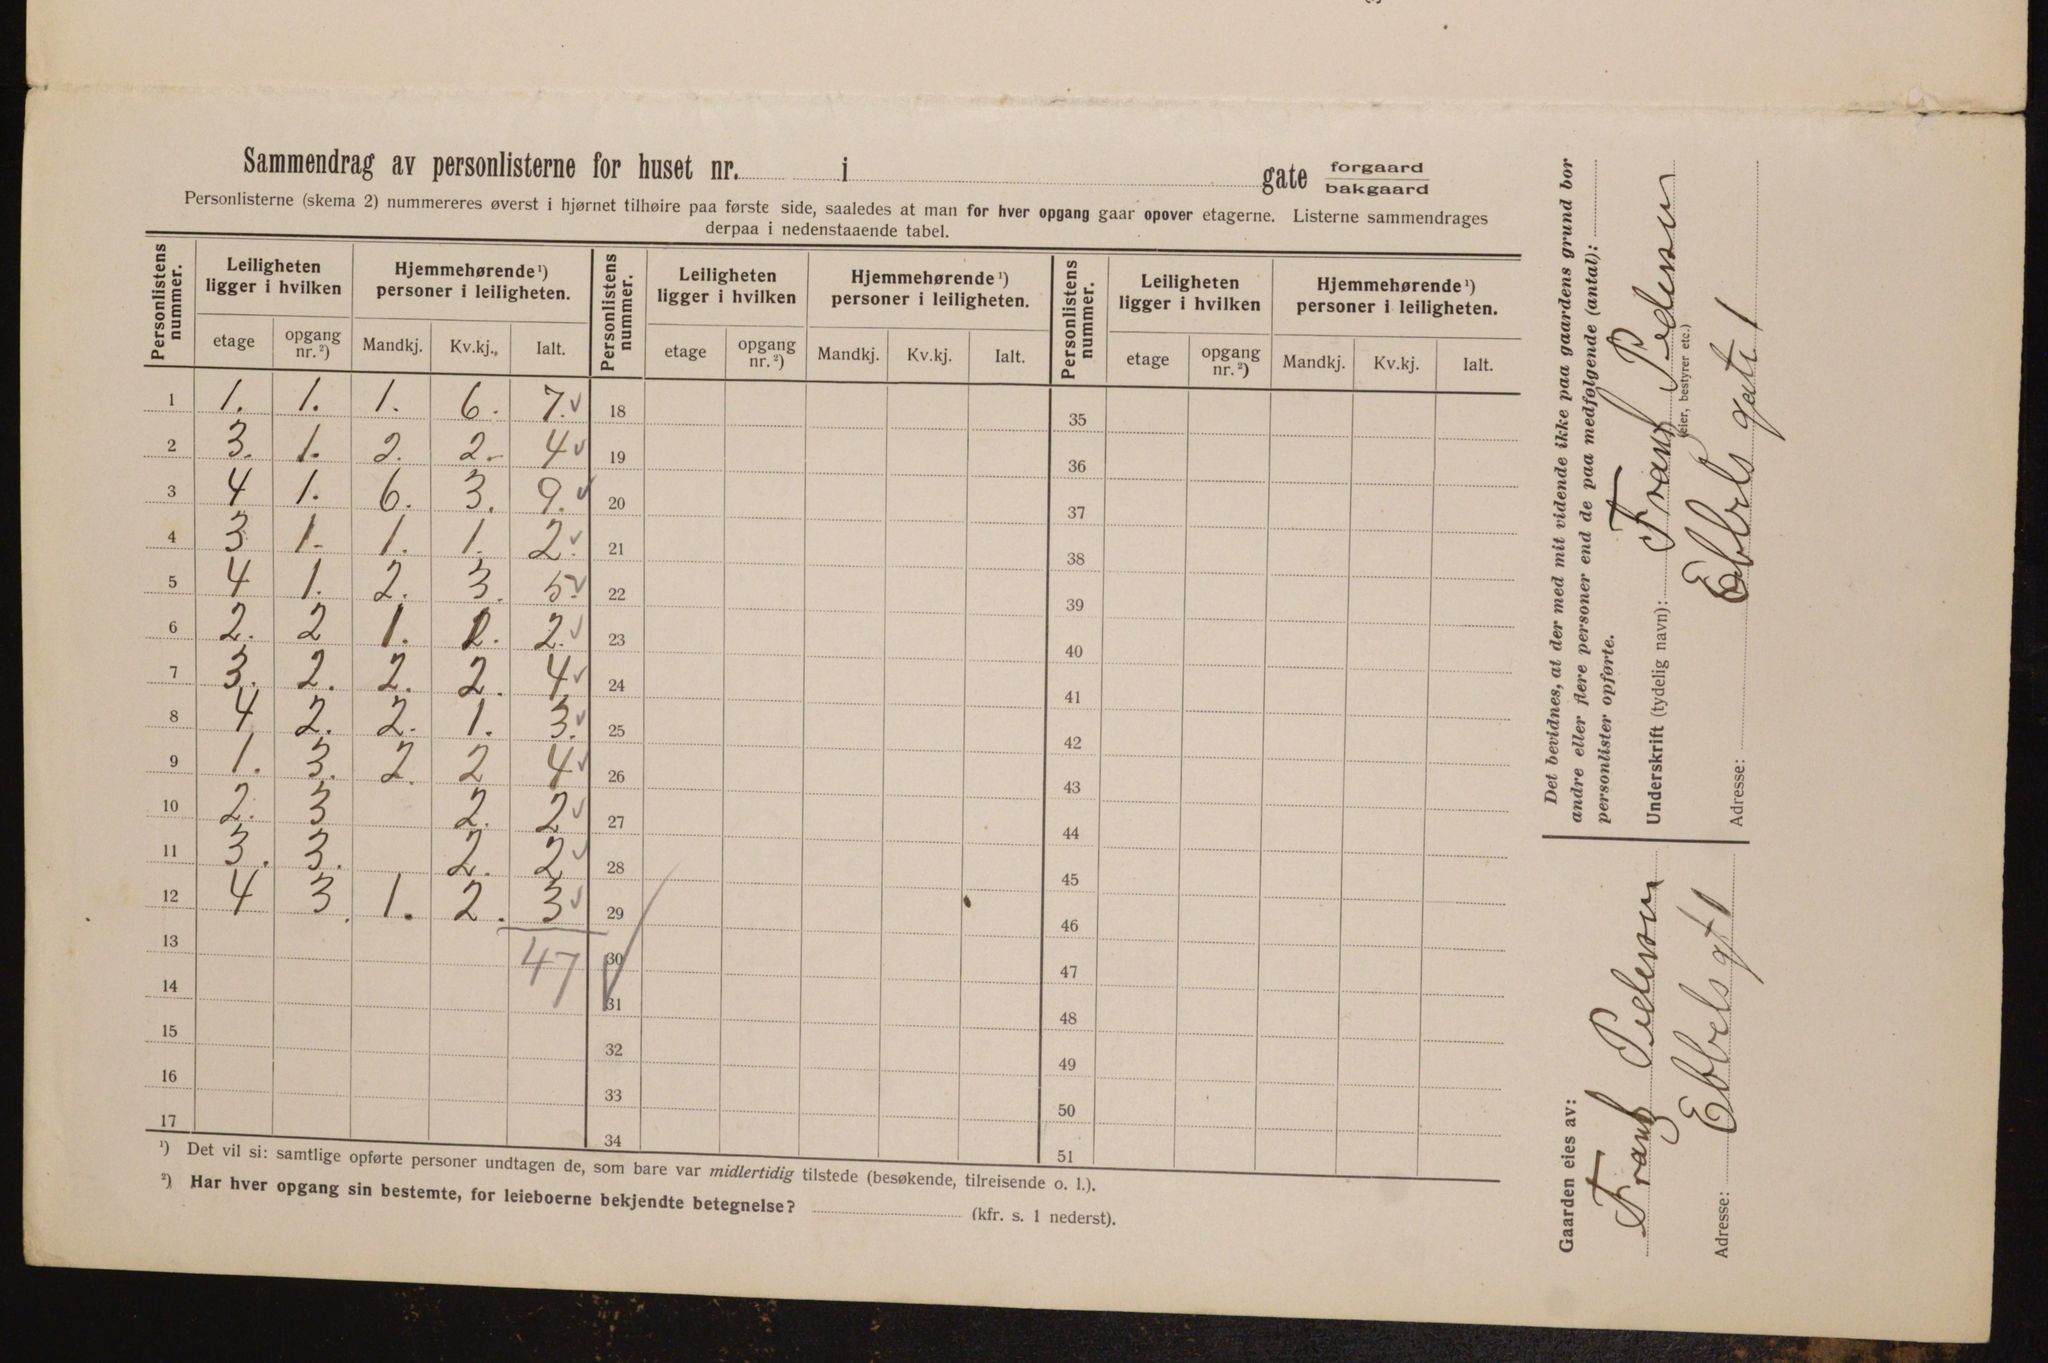 Sammendrag av personlisterne for huset nr. i gate forgaard bakgaard
Personlisterne (skema 2) nummereres øverst i hjørnet tilhøire paa første side, saaledes at man for hver opgang gaar opover etagerne. Listerne sammendrages
derpaa i nedenstaaende tabel.
Personlistens nummer. Leiligheten ligger i hvilken Hjemmehørende ¹) personer i leiligheten. Personlistens nummer. Leiligheten ligger i hvilken Hjemmehørende ¹) personer i leiligheten. Personlistens nummer. Leiligheten ligger i hvilken Hjemmehørende ¹) personer i leiligheten.
etage opgang nr. ²) Mandkj. Kv.kj., Ialt. etage opgang nr. ²) Mandkj. Kv.kj. Ialt. etage opgang nr. ²) Mandkj. Kv.kj. Ialt.
1 1. 1. 1. 6. 7. ✓ 18 35
2 3. 1. 2. 2. 4 ✓ 19 36
3 4 1. 6. 3. 9. ✓ 20 37
4 3 1. 1. 1. 2. ✓ 21 38
5 4 1. 2. 3. 5. ✓ 22 39
6 2. 2 1. 1. 2. ✓ 23 40
7 3. 2. 2. 2. 4 ✓ 24 41
8 4 2. 2. 1. 3. ✓ 25 42
9 1. 3. 2. 2 4 ✓ 26 43
10 2. 3 2. 2 ✓ 27 44
11 3. 3. 2. 2 ✓ 28 45
12 4 3. 1. 2. 3 ✓ 29 46
13 47 30 47
14 31 48
15 32 49
16 33 50
17 34 51
¹) Det vil si: samtlige opførte personer undtagen de, som bare var midlertidig tilstede (besøkende, tilreisende o. l.).
²) Har hver opgang sin bestemte, for leieboerne bekjendte betegnelse? (kfr. s. 1 nederst).
Det bevidnes, at der med mit vidende ikke paa gaardens grund bor
andre eller flere personer end de paa medfølgende (antal):
personlister opførte.
Underskrift (tydelig navn): Frantz Pedersen
(eier, bestyrer etc.)
Adresse: Ebbels gate 1
Gaarden eies av:
Frantz Pedersen
Adresse: Ebbels gt 1